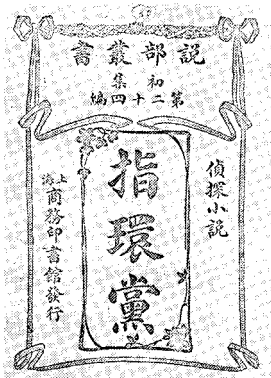 説部叢書
初集
第二十四編
偵探小説
指環黨
上海商務印書館發行